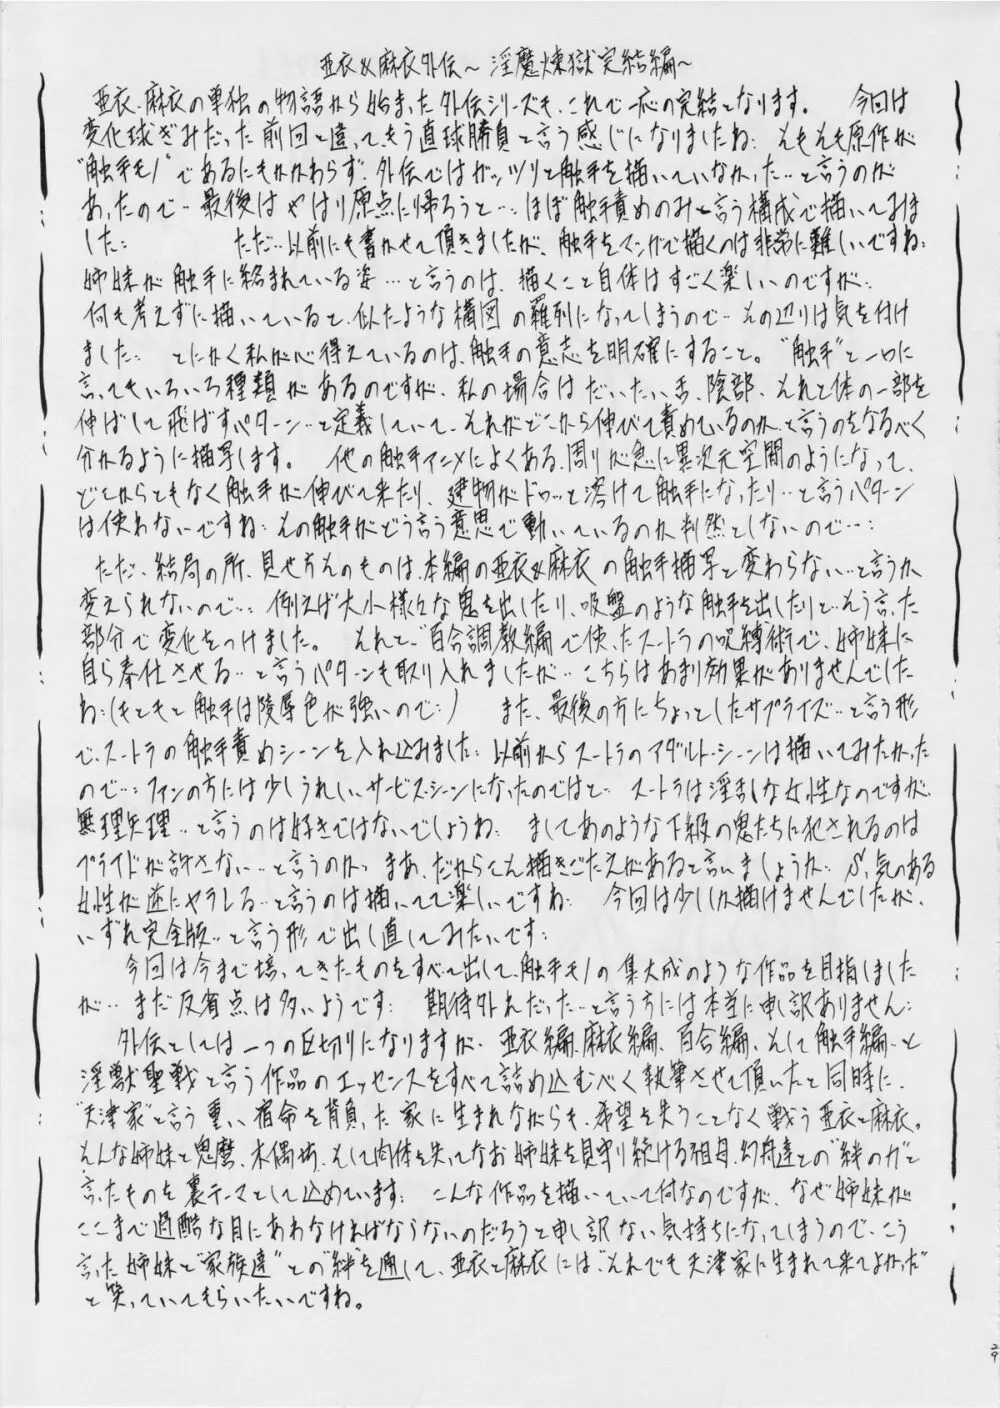 亜衣&麻衣外伝～淫魔煉獄完結編～
亜衣、麻衣の単独の物語から始まった外伝シリーズも、これで一応の完結となります。 今回は
変化球ぎみだった前回と違ってもう直球勝負と言う感じになりましたね… そもそも原作が
“触手モノ”であるにもかかわらず、外伝ではガッツリと触手を描いていなかった…と言うのが
あったので…最後はやはり原点に帰ろうと…ほぼ触手責めのみと言う構成で描いてみま
した… ただ…以前にも書かせて頂きましたが、触手をマンガで描くのは非常に難しいですね…
姉妹が触手に絡まれている姿…と言うのは、描くこと自体はすごく楽しいのですが…
何も考えずに描いていると、似たような構図の羅列になってしまうので…その辺りは気を付け
ました… とにかく私が心得ているのは、触手の意志を明確にすること。“触手”と一口に
言ってもいろいろ種類があるのですが、私の場合はだいたい舌、陰部、それと体の一部を
伸ばして飛ばすパターン…と定義していて、それがどこから伸びて責めているのか、と言うのをなるべく
分かるように描写します。 他の触手アニメによくある、周りが急に異次元空間のようになって、
どこからともなく触手が伸びて来たり、建物がドロッと溶けて触手になったり…と言うパターン
は使わないですね…その触手がどう言う意思で動いているのか判然としないので…
ただ、結局の所、見せ方そのものは、本編の亜衣&麻衣の触手描写と変わらない…と言うか
変えられないので…例えば大小様々な鬼を出したり、吸盤のような触手を出したりと…そう言った
部分で変化をつけました。 それと、“百合調教編”で使ったスートラの呪縛術で、姉妹に
自ら奉仕させる…と言うパターンも取り入れましたが…こちらはあまり効果がありませんでした
ね…(もともと触手は陵辱色が強いので…) また、最後の方にちょっとしたサプライズ…と言う形
で、スートラの触手責めシーンを入れ込みました…以前からスートラのアダルトシーンは描いてみたかった
ので…ファンの方には少しうれしいサービスシーンになったのではと… スートラは淫乱な女性なのですが、
無理矢理…と言うのは好きではないでしょうね… ましてあのような下級の鬼たちに犯されるのは
プライドが許さない…と言うのか… まあ、だからこそ描きごたえがあると言いましょうか…S、気のある
女性が逆にヤラレる…と言うのは描いてて楽しいですね… 今回は少ししか描けませんでしたが、
いずれ完全版…と言う形で出し直してみたいです…
今回は今まで培ってきたものをすべて出して、触手モノの集大成のような作品を目指しました
が…まだ反省点は多いようです… 期待外れだった…と言う方には本当に申し訳ありません…
外伝としては一つの区切りになりますが、亜衣編、麻衣編、百合編、そして触手編…と
淫獣聖戦と言う作品のエッセンスをすべて詰め込むべく執筆させて頂いたと同時に、
“天津家”と言う重い宿命を背負った家に生まれながらも、希望を失うことなく戦う亜衣と麻衣。
そんな姉妹と鬼麿、木偶坊、そして肉体を失ってなお姉妹を見守り続ける祖母、幻舟達との“絆の力”と
言ったものを裏テーマとして込めています… こんな作品を描いていて何なのですが、なぜ姉妹が
ここまで過酷な目にあわなければならないのだろうと申し訳ない気持ちになってしまうので、こう
言った姉妹と“家族達”との“絆”を通して、亜衣と麻衣には、“それでも天津家に生まれて来てよかった”
と笑っていてもらいたいですね。
29